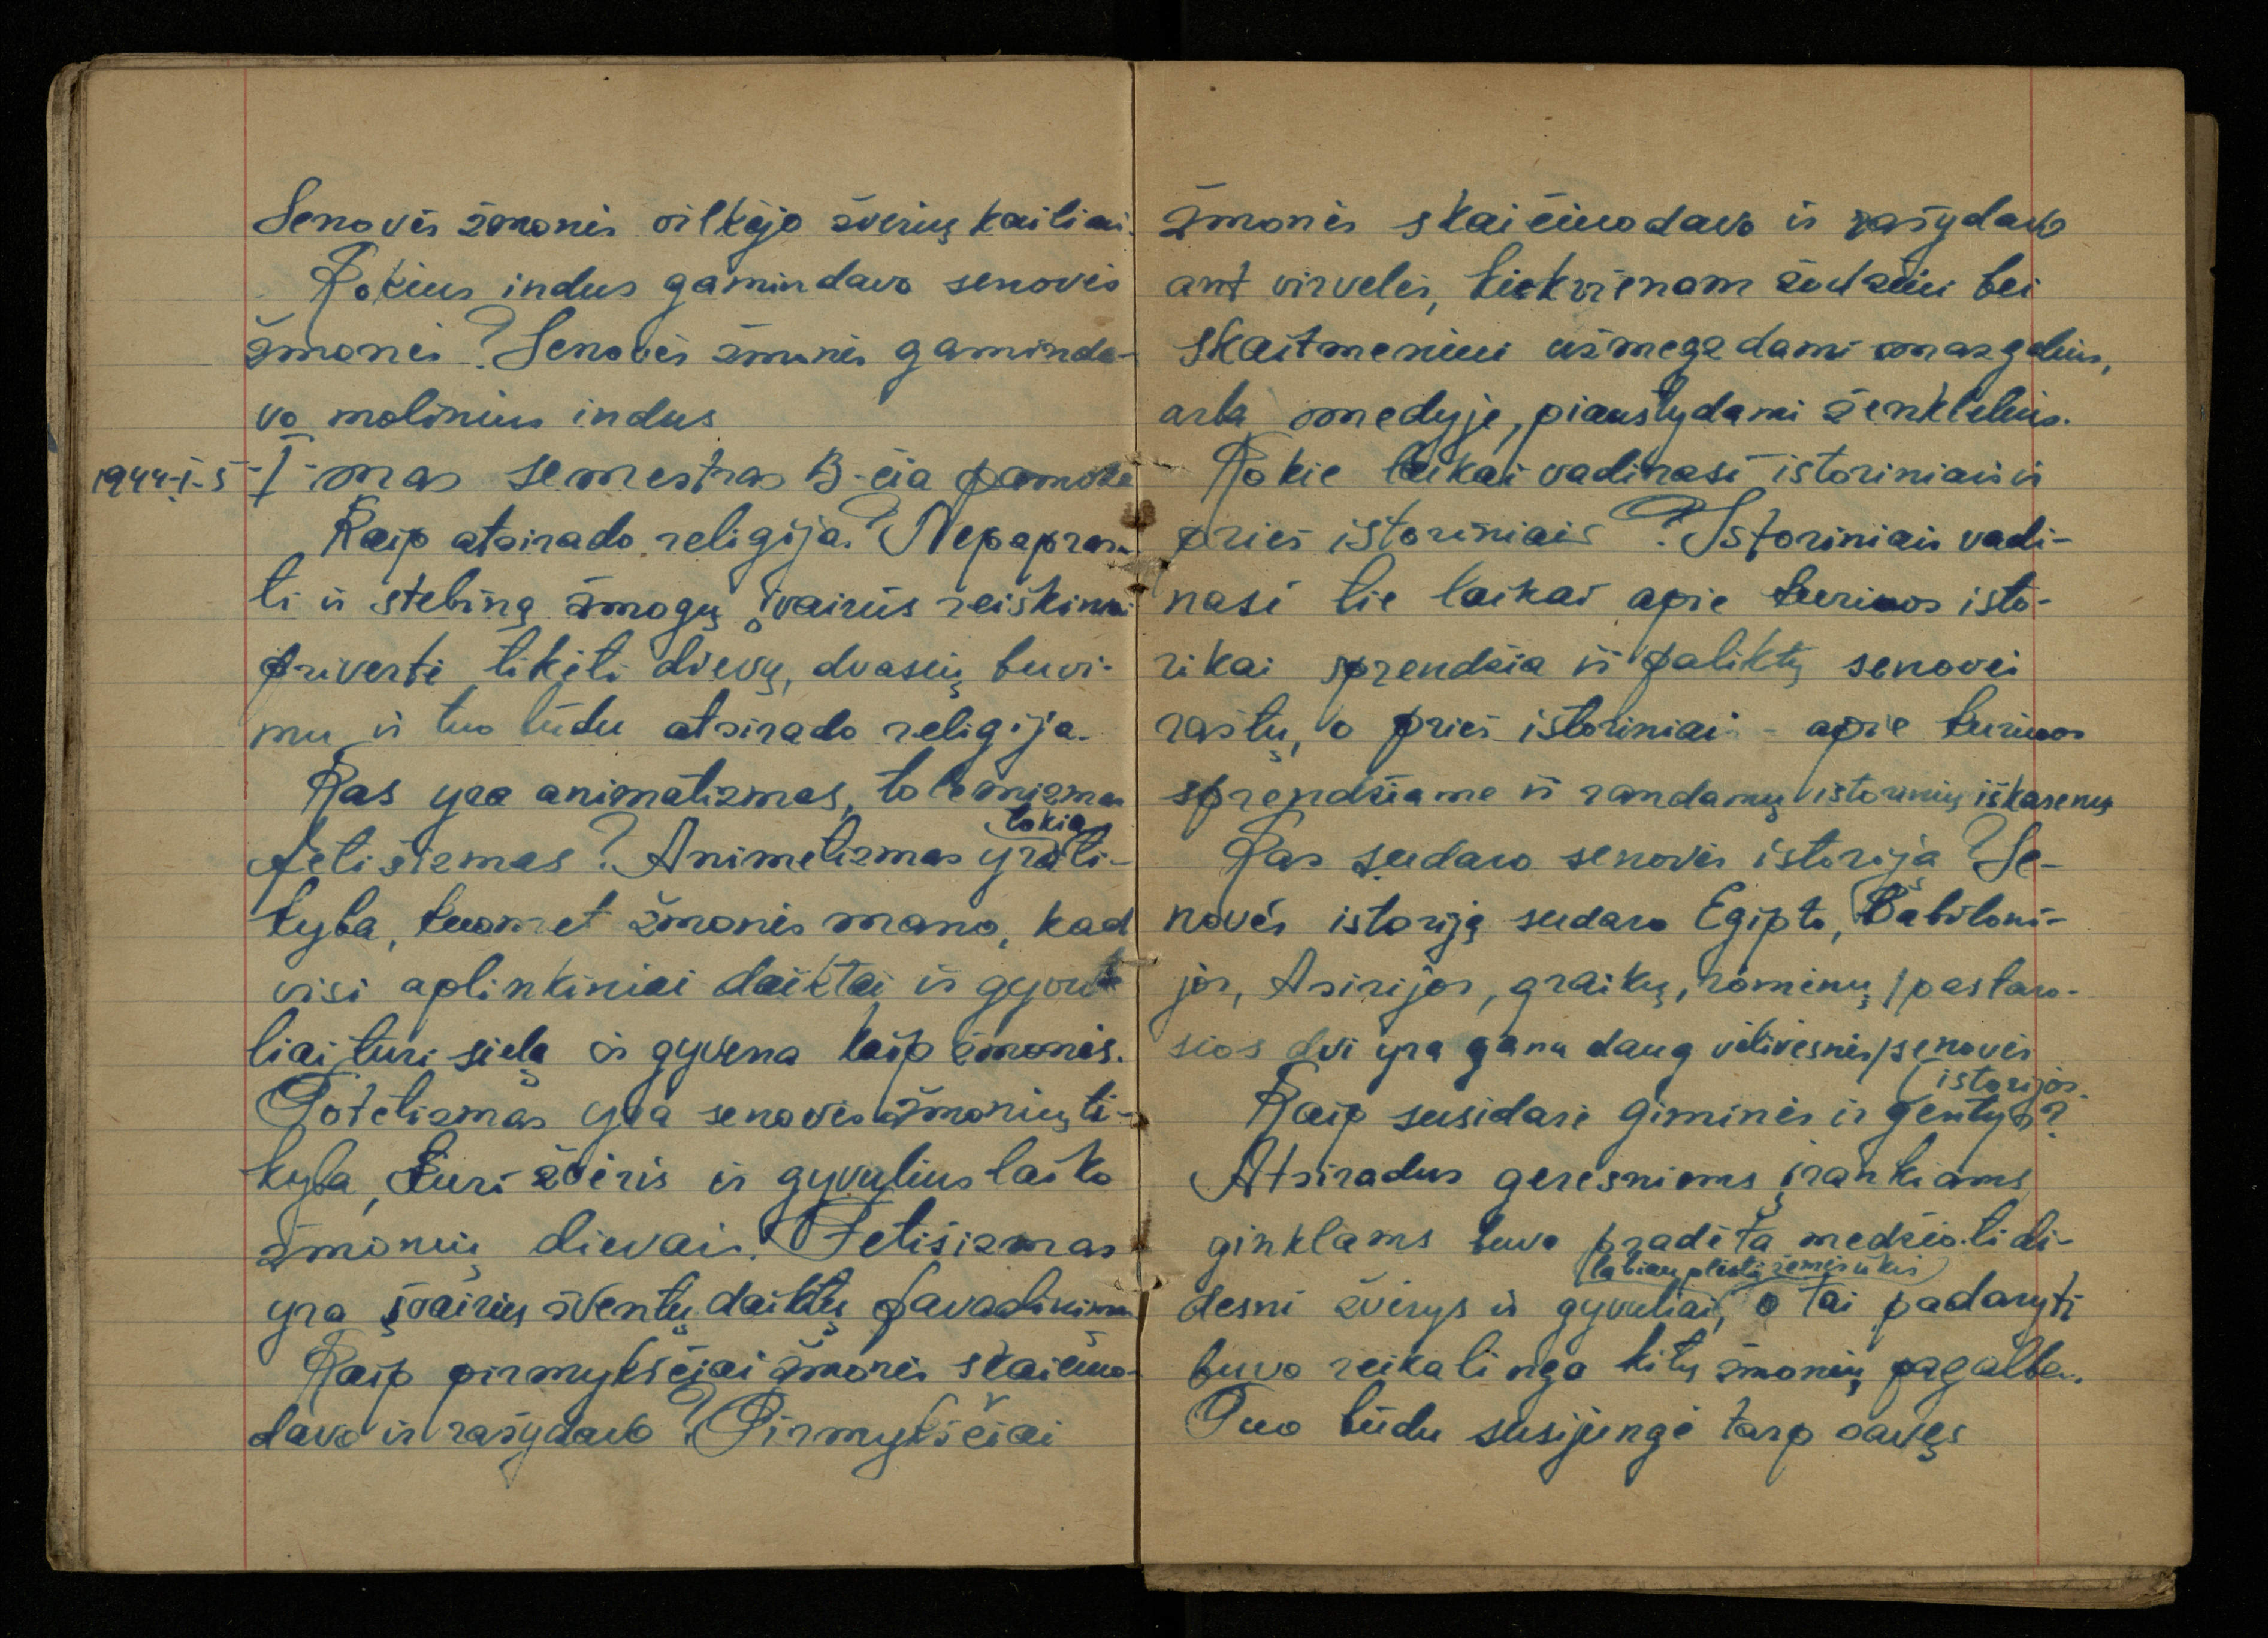 Senovės žmonės vilkėjo žvėrių kailiais.
Kokius indus gamindavo senovės
žmonės? Senovės žmonės gaminda-
vo molinius indus
1944-I-5 - I-mas semestras 3-čia pamoka
Kaip atsirado religija? Nepapras-
ti ir stebiną žmogų įvairūs reiškiniai
privertė tikėti dievų, dvasių buvi-
mu ir tuo būdu atsirado religija.
Kas yra animatizmas, totemizmas
tokia
fetišizmas? Animetizmas yra ti-
kyba, kuomet žmonės mano, kad
visi aplinkiniai daiktai ir gyvu-
liai turi sielą ir gyvena kaip žmonės.
Totetizmas yra senovės žmonių ti-
kyba, kuri žvėris ir gyvulius laiko
žmonių dievais. Fetišizmas
yra įvairių šventų daiktų pavadinimas
Kaip pirmykščiai žmonės skaičiuo-
davo ir rašydavo? Pirmykščiai
žmonės skaičiuodavo ir rašydavo
ant virvelės, kiekvienam žodžiui bei
skaitmeniui užmegzdami mazgelius,
arba medyje, piaustydami ženklelius.
Kokie laikai vadinasi istoriniais ir
prieš istoriniais? Istoriniais vadi-
nasi tie laikai apie kuriuos isto-
rikai sprendžia iš paliktų senovėi
raštų, o prieš istoriniai - apie kuriuos
sprendžiame iš randamų istorinių iškasenų
Kas sudaro senovės istoriją? Se-
novės istoriją sudaro Egipto, Babiloni-
jos, Asirijos, graikų, romėnų / pastaro-
sios dvi yra gana daug vėlivesnės / senovės
istorijos.
Kaip susidarė giminės ir gentys?
Atsiradus geresniems įrankiams
ginklams buvo pradėta medžioti di-
labiau plėsti žemės ūkis
desni žvėrys ir gyvuliai, o tai padaryti
buvo reikalinga kitų žmonių pagalba.
Tuo būdu susijungė tarp savęs